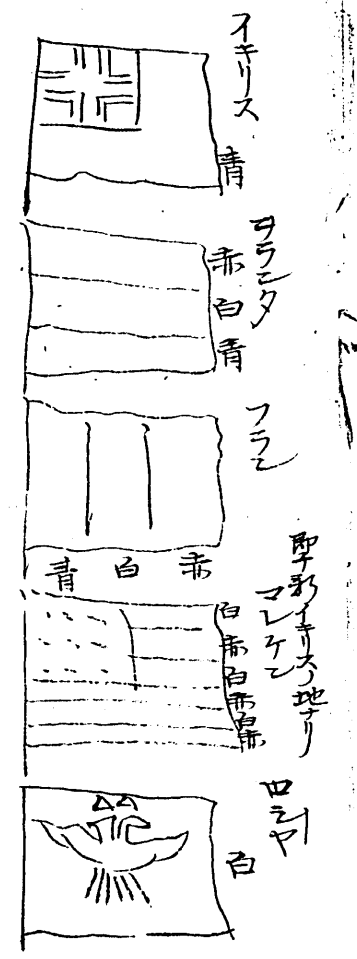 イキリス
青
ヲランタ
赤
白
青
フラン
青 白 赤
即チ新イキリスノ地ナリ
マレケン
白
赤
白
赤
白
赤
ロシヤ
白